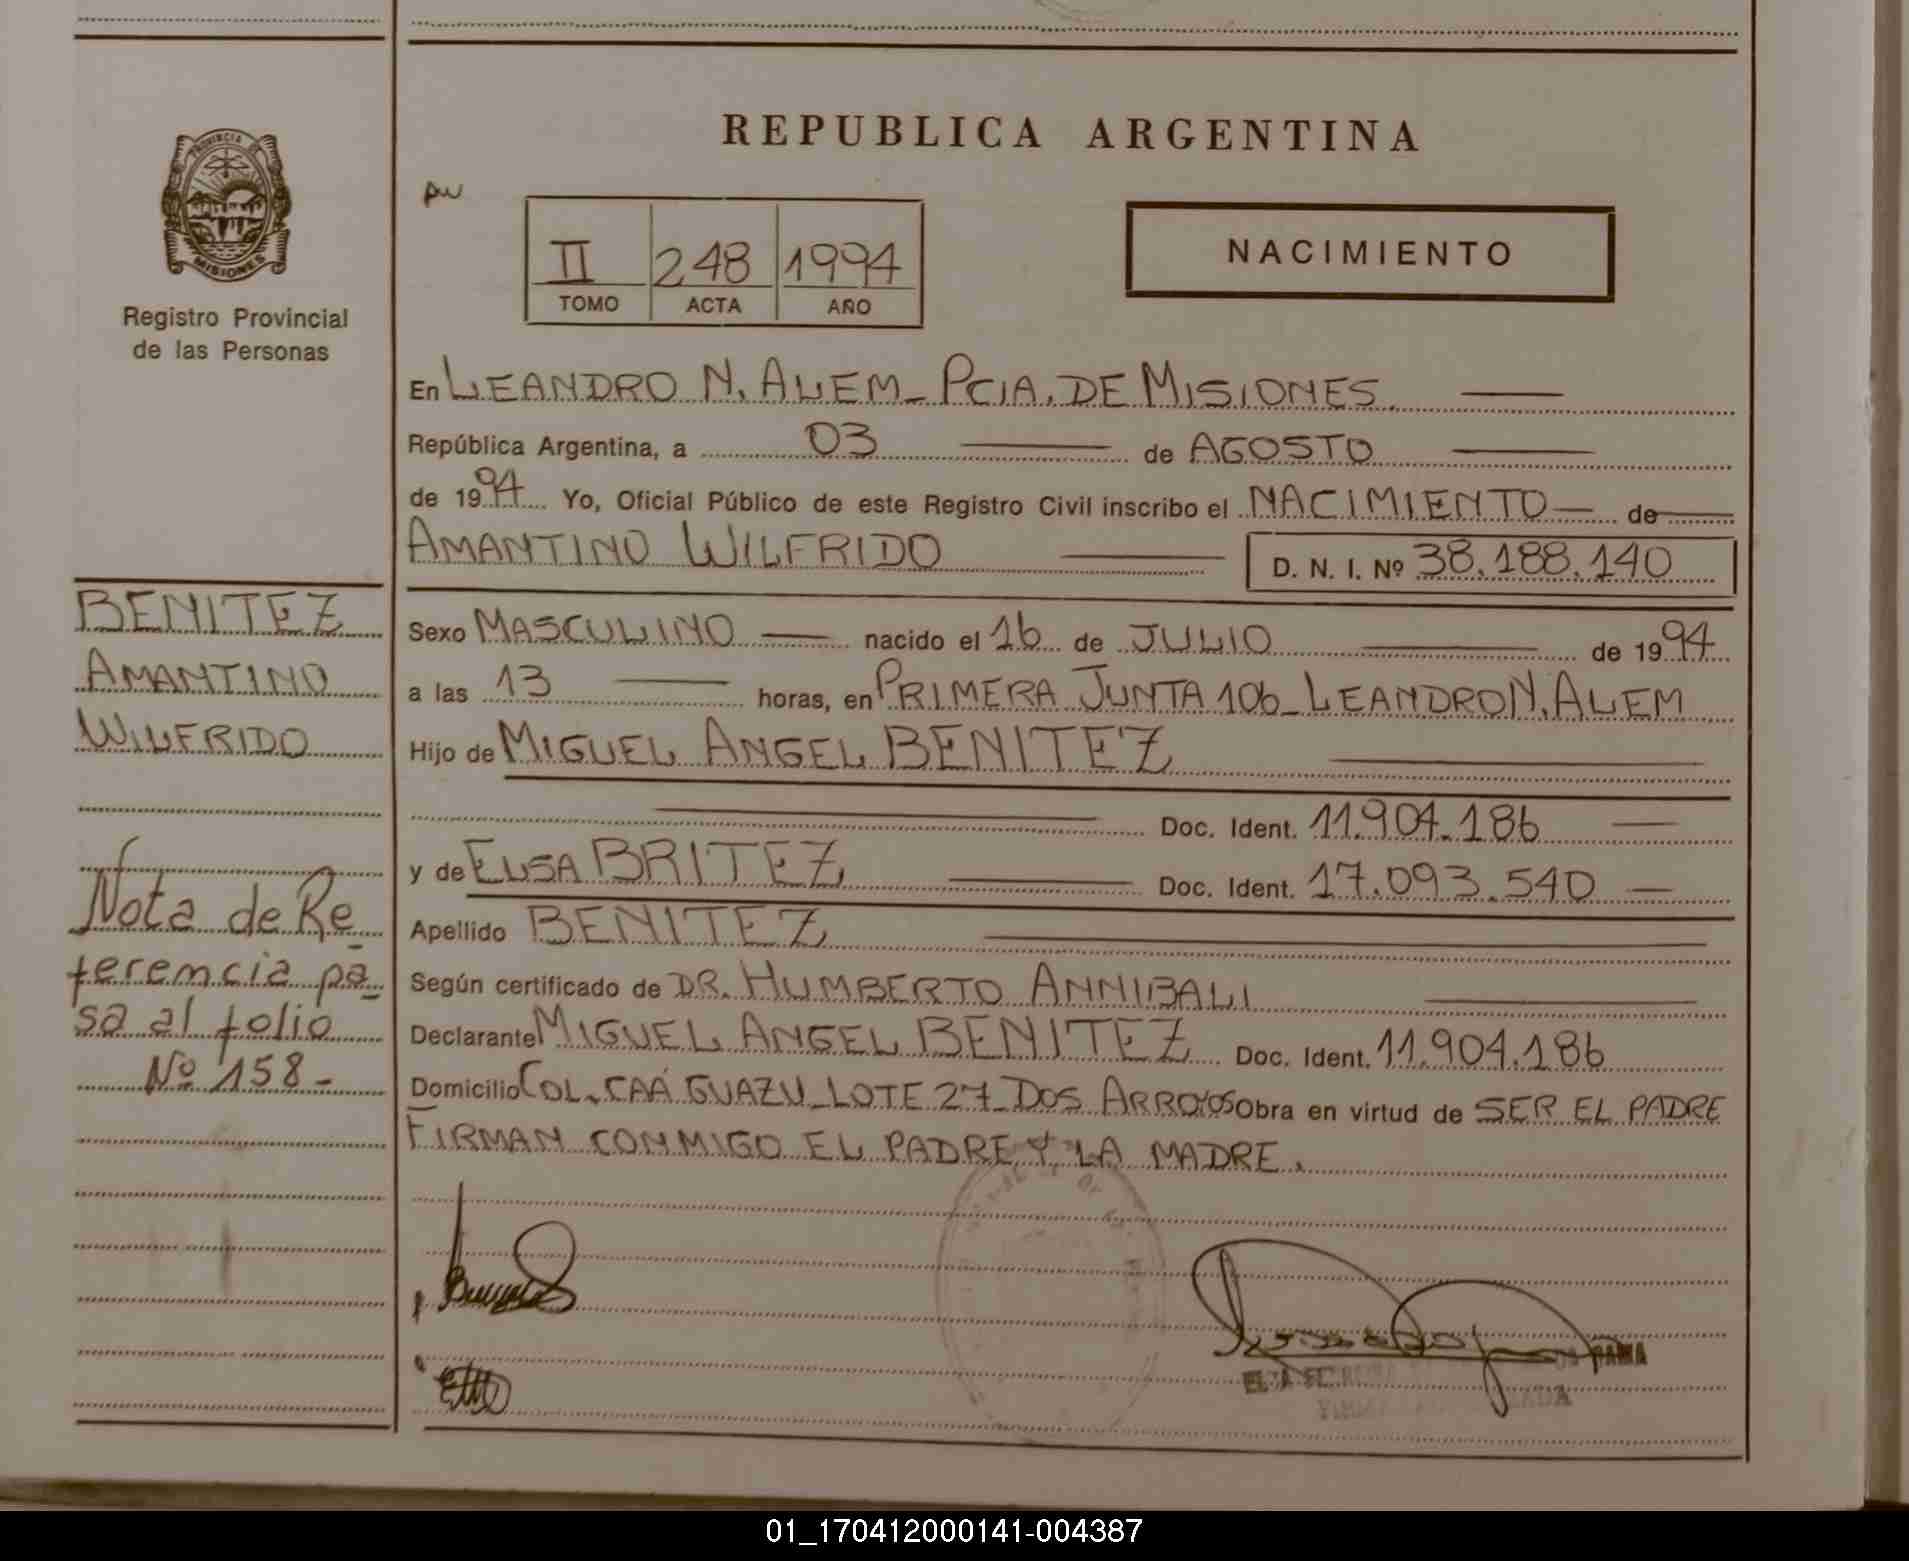 REPUBLICA ARGENTINA
PROVINCIA DE
MISIONES
Registro Provincial
de las Personas
II 248 1994
TOMO ACTA AÑO
NACIMIENTO
En LEANDRO N. ALEM_ PCIA. DE MISIONES.
República Argentina, a 03 de AGOSTO
de 1994 Yo, Oficial Público de este Registro Civil inscribo el NACIMIENTO de
AMANTINO WILFRIDO D. N. I. Nº 38.188.140
Sexo MASCULINO nacido el 16 de JULIO de 1994
a las 13 horas, en PRIMERA JUNTA 106_ LEANDRO N. ALEM
Hijo de MIGUEL ANGEL BENITEZ
Doc. Ident. 11.904.186
y de ELSA BRITEZ Doc. Ident. 17.093.540
Apellido BENITEZ
Según certificado de DR. HUMBERTO ANNIBALI
Declarante MIGUEL ANGEL BENITEZ Doc. Ident. 11.904.186
Domicilio COL. CAÁ GUAZU_ LOTE 27_ DOS ARROYOS Obra en virtud de SER EL PADRE
FIRMAN CONMIGO EL PADRE Y LA MADRE.
BENITEZ
AMANTINO
WILFRIDO
Nota de Re_
ferencia pa_
sa al folio
Nº 158-
01_170412000141-004387